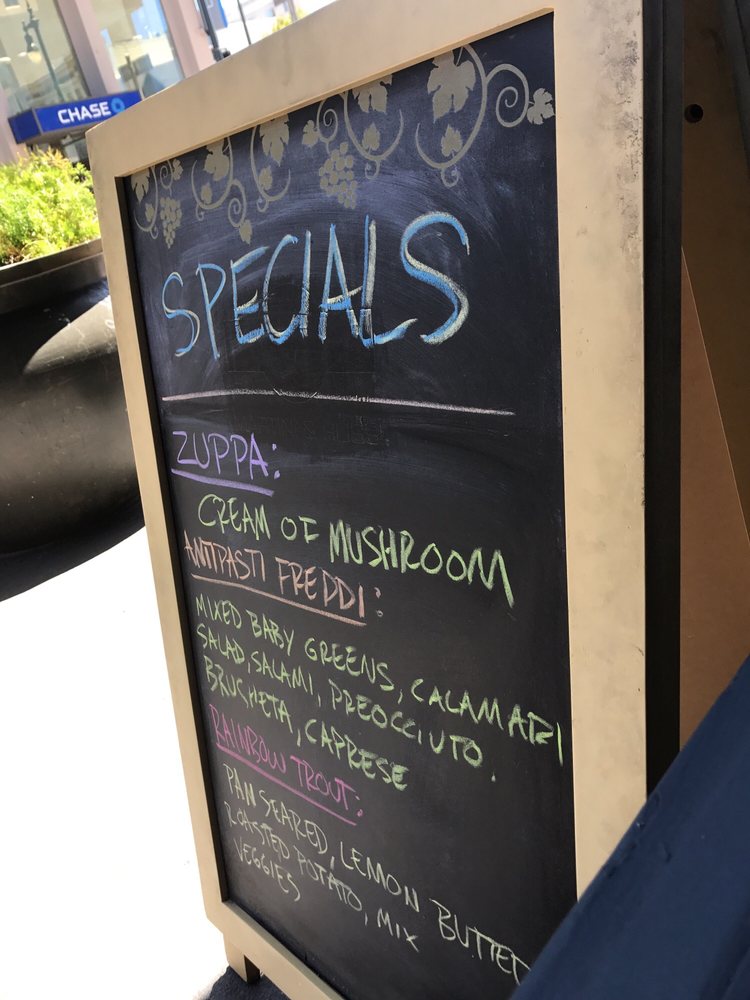 CHASE
SPECIALS
ZUPPA:
CREAM OF MUSHROOM
ANTIPASTI FREDDI:
MIXED BABY GREENS, CALAMARI
SALAD, SALAMI, PREOCCIUTO.
BRUSCHETA, CAPRESE
RAINBOW TROUT:
PAN SEARED, LEMON BUTTER
ROASTED POTATO, MIX
VEGGIES